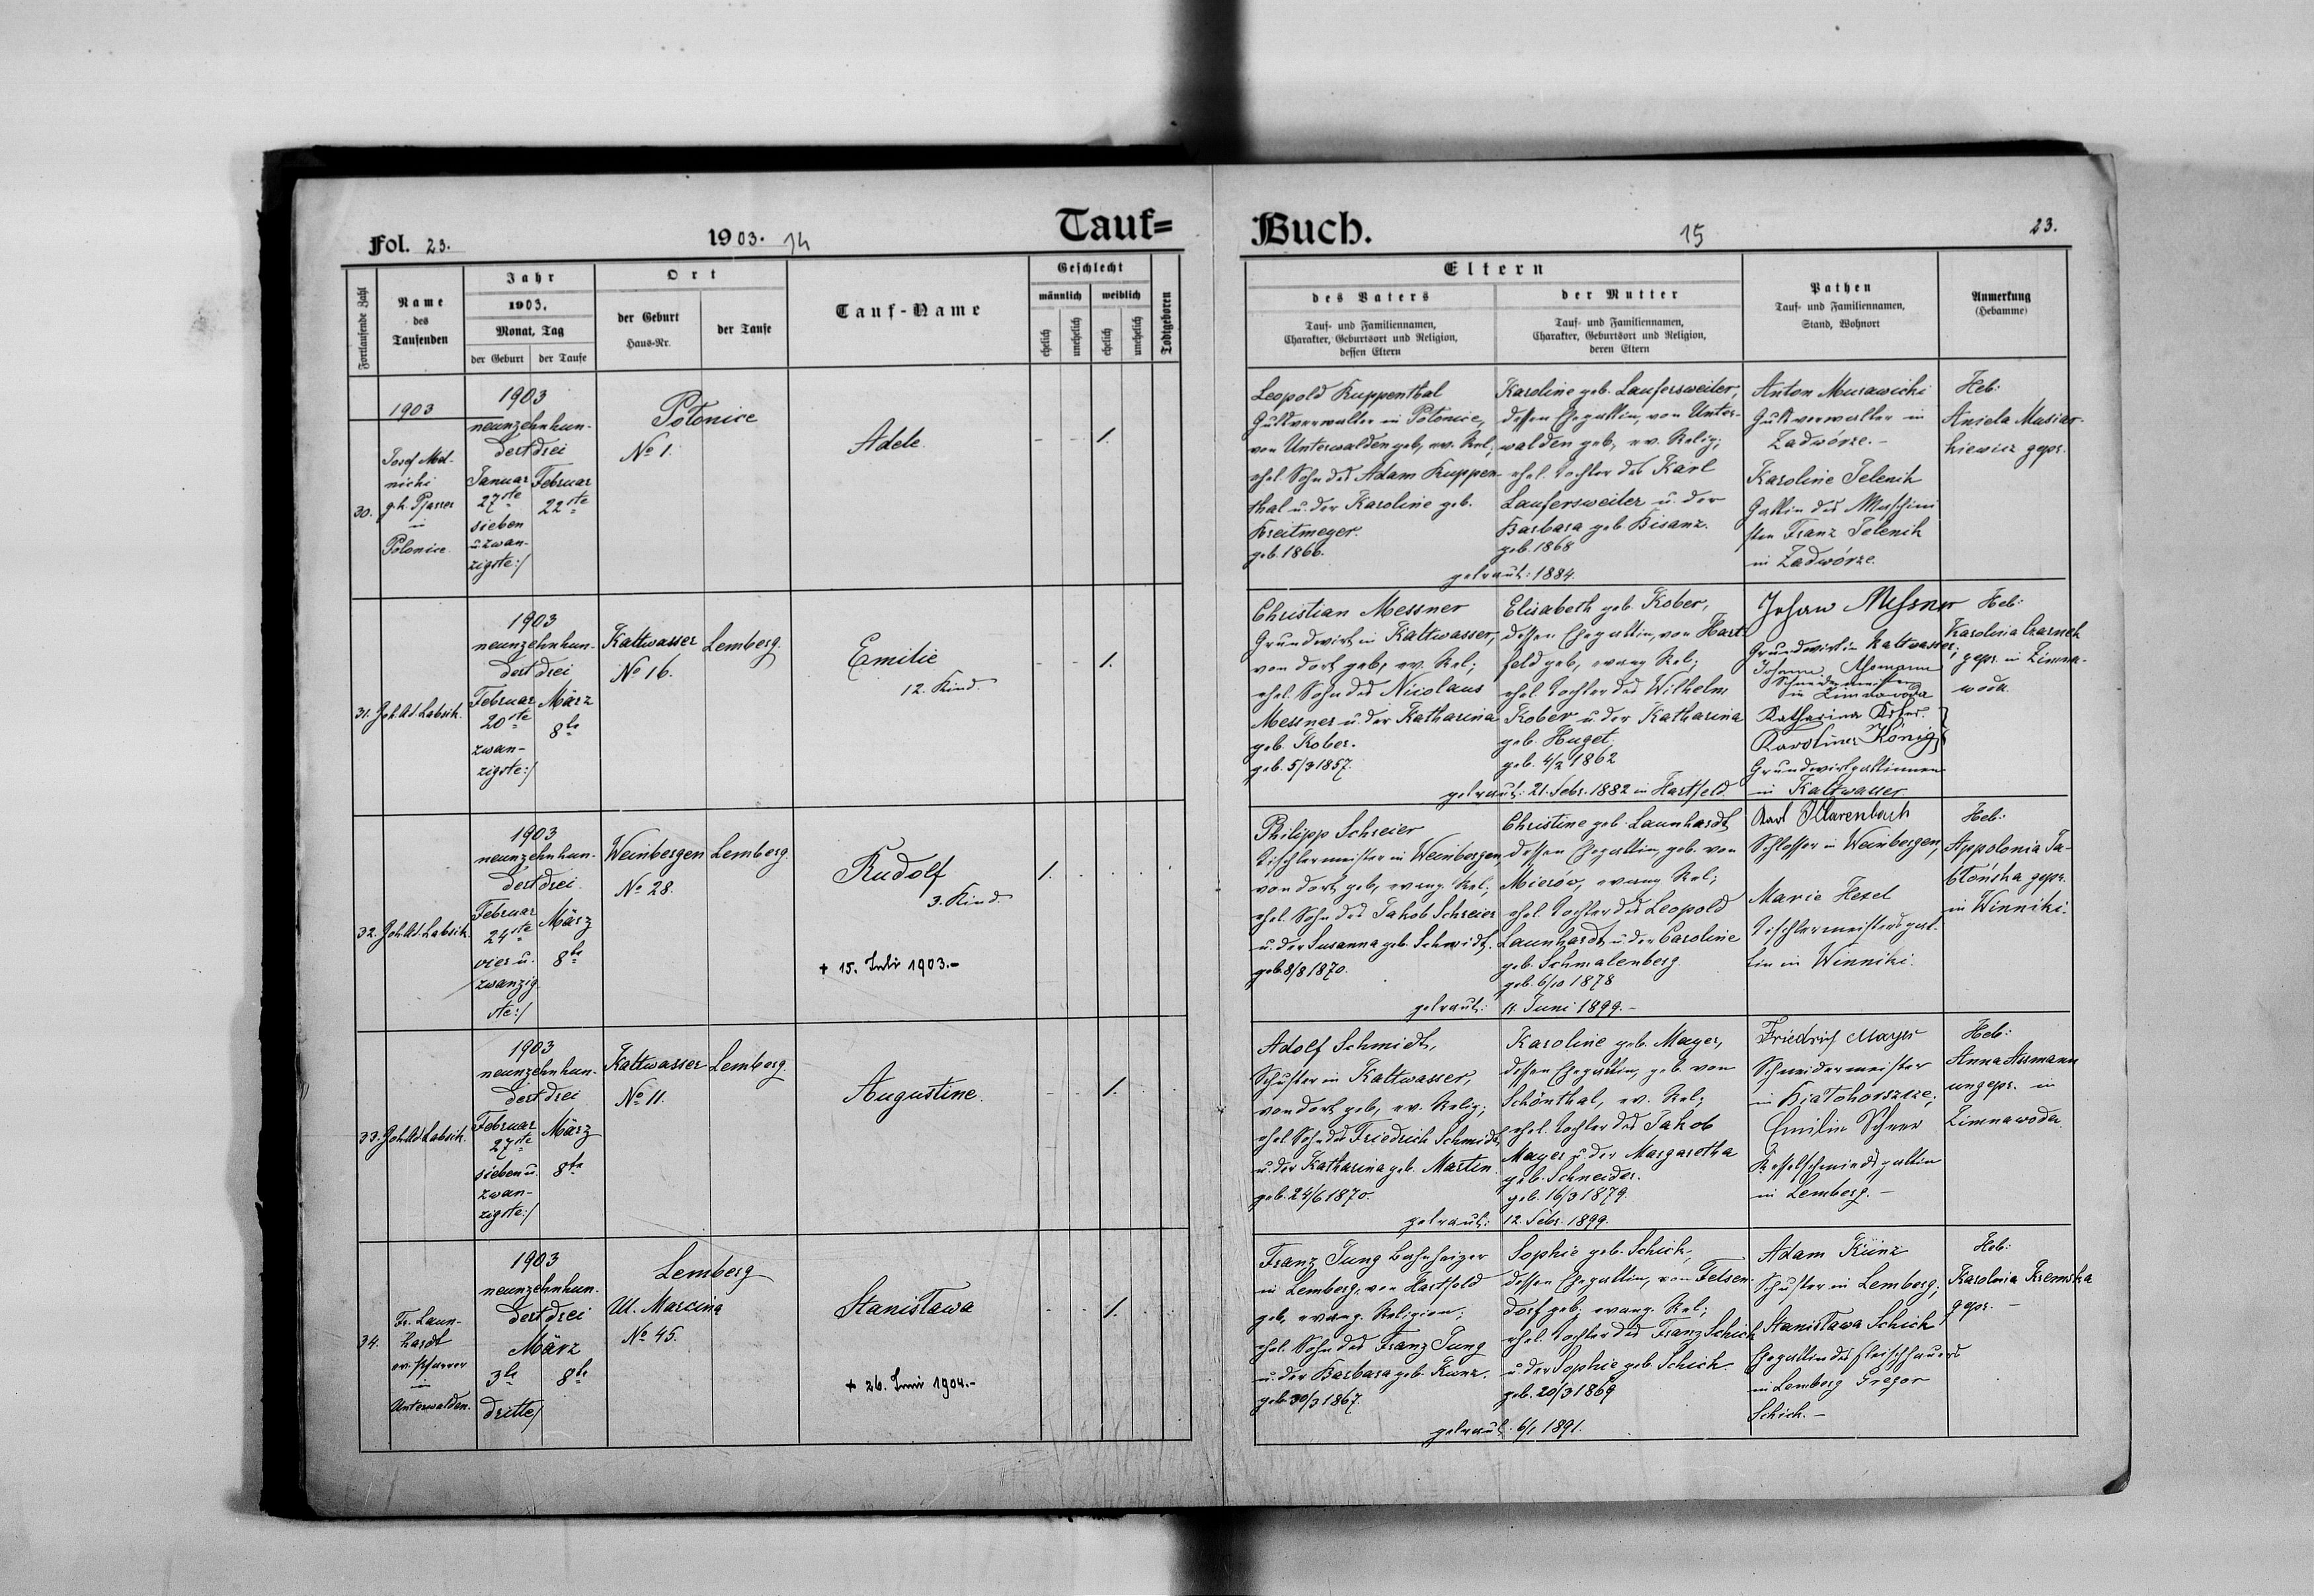 Fol. 23.
1903. 14
Tauf=
Fortlaufende Zahl
Name
des
Taufenden
Jahr
1903.
Monat, Tag
der Geburt
der Taufe
Ort
der Geburt
Haus-Nr.
der Taufe
Tauf-Name
Geschlecht
männlich
weiblich
ehelich
unehelich
ehelich
unehelich
Todtgeboren
30.
1903
nicki
Pfarrer
in
Polonice
1903
neunzehnhun-
dertdrei
Januar Februar
27ste 22ste
sieben
u. zwan-
zigste:/
Polonice
No 1.
Adele
- - 1.
31. Joh. Ad. Labsik.
1903
neunzehnhun-
dertdrei
Februar März
20ste 8te
zwan-
zigste:/
Kaltwasser Lemberg.
No 16.
Emilie
12. Kind.
- - 1.
32. Joh. Ad. Labsik.
1903
neunzehnhun-
dertdrei
Februar März
24ste
vier u. 8te
zwanzig
ste:/
Weinbergen Lemberg.
No 28.
Rudolf
3. Kind.
+ 15. Juli 1903.-
1. . . . .
33. Joh. Ad. Labsik.
1903
neunzehnhun-
dertdrei
Februar März
27ste
sieben u. 8te
zwan-
zigste:/
Kaltwasser Lemberg.
No 11.
Augustine.
- - 1. . .
34.
Fr. Laun-
hardt
ev. Pfarrer
in
Unterwalden.
1903
neunzehnhun-
dertdrei
März
3te 8te
dritte/
Lemberg
Ul. Marcina
No 45.
Stanisława
+ 26. Juni 1904.-
- - 1. . .
Buch.
15
23.
Eltern
des Vaters
Tauf- und Familiennamen,
Charakter, Geburtsort und Religion,
dessen Eltern
der Mutter
Tauf- und Familiennamen,
Charakter, Geburtsort und Religion,
deren Eltern
Pathen
Tauf- und Familiennamen,
Stand, Wohnort
Anmerkung
(Hebamme)
Leopold Kuppenthal
Gutsverwalter in Polonice,
von Unterwalden geb., ev. Rel.;
ehel. Sohn des Adam Kuppen-
thal u. der Karoline geb.
Kreitmeyer.
geb. 1866.
Karoline geb. Laufersweiler,
dessen Ehegattin, von Unter-
walden geb., ev. Relig.;
ehel. Tochter des Karl
Laufersweiler u. der
Barbara geb. Bisanz.
geb. 1868
getraut: 1884.
Anton Murawicki
Gutsverwalter in
Zadwórze.-
Karoline Telenik
Gattin des Maschini
sten Franz Telenik
in Zadwórze.
Heb:
Aniela
kiewicz gepr.
Christian Messner
Grundwirt in Kaltwasser,
von dort geb., ev. Rel.;
ehel. Sohn des Nicolaus
Messner u. der Katharina
geb. Kober.
geb. 5/3 1857.
Elisabeth geb. Kober,
dessen Ehegattin, von Hart-
feld geb., evang. Rel.;
ehel. Tochter des Wilhelm
Kober u. der Katharina
geb. Huget.
geb. 4/2 1862
getraut: 21. Febr. 1882 in Hartfeld.
Johann Messner
Grundwirt in Kaltwasser;
Johann
Schneidermeister
in Zimnawoda
Katharina
Karoline König
Grundwirtgattinnen
in Kaltwasser.
Heb:
Karolina Czarnek
gepr. in Zimna-
woda.
Philipp Schreier
Tischlermeister in Weinbergen,
von dort geb., evang. Rel.;
ehel. Sohn des Jakob Schreier
u. der Susanna geb. Schmidt.
geb. 8/8 1870.
Christine geb. Launhardt
dessen Ehegattin, geb. von
Mierów, evang. Rel.;
ehel. Tochter des Leopold
Launhardt u. der Caroline
geb. Schmalenberg.
geb. 6/10 1878
getraut: 11. Juni 1899.-
Karl Klarenbach
Schlosser in Weinbergen,
Marie Hexel
Tischlermeistersgat-
tin in Winniki.
Heb:
Appolonia Ja-
błońska gepr.
in Winniki.
Adolf Schmidt,
Schuster in Kaltwasser,
von dort geb., ev. Relig.;
ehel. Sohn des Friedrich Schmidt
u. der Katharina geb. Martin.
geb. 24/6 1870.
Karoline geb. Mayer,
dessen Ehegattin, geb. von
Schönthal, ev. Rel.;
ehel. Tochter des Jakob
Mayer u. der Margaretha
geb. Schneider.
geb. 16/3 1879.
getraut: 12. Febr. 1899.
Friedrich Mayer
Schneidermeister
in Białohorszcze;
Emilie Scherr
Kesselschmiedsgattin
in Lemberg.-
Heb:
Anna Assmann
ungepr. in
Zimnawoda.
Franz Jung Bahnheizer
in Lemberg, von Hartfeld
geb., evang. Religion;
ehel. Sohn des Franz Jung
u. der Barbara geb. Kunz.
geb. 30/3 1867.
Sophie geb. Schick,
dessen Ehegattin, von Felsen-
dorf geb., evang. Rel.;
ehel. Tochter des Franz Schick
u. der Sophie geb. Schick.
geb. 20/3 1869
getraut: 6/1 1891.
Adam Künz
Schuster in Lemberg;
Stanisława Schick,
Ehegattin des Fleischhauers
in Lemberg Gregor
Schick.-
Heb:
Karolina Kremska
gepr. -